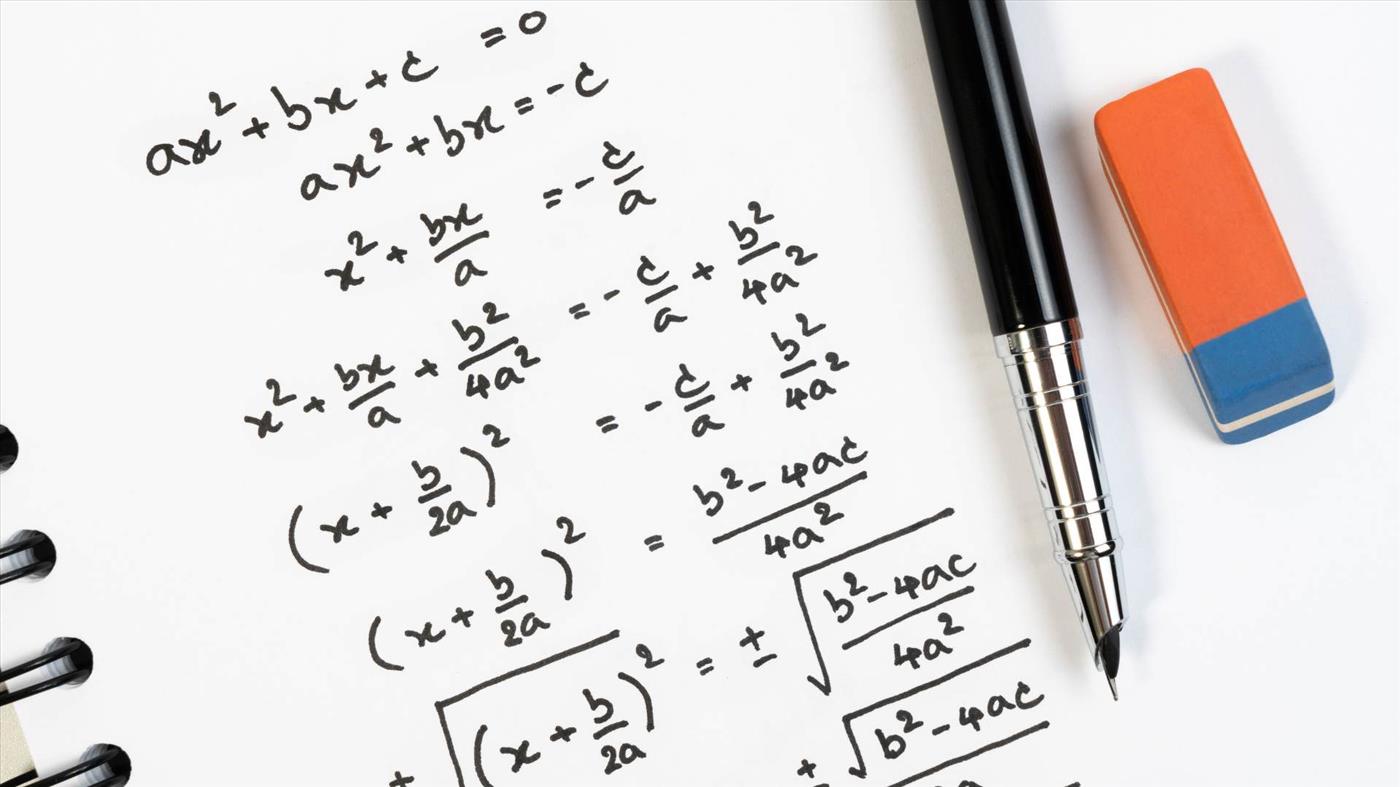 ax² + bx + c = 0
ax² + bx = -c
x² + bx/a = - c/a
x² + bx/a + b²/4a² = - c/a + b²/4a²
(x + b/2a)² = - c/a + b²/4a²
(x + b/2a)² = (b² - 4ac)/4a²
√(x + b/2a)² = ± √((b² - 4ac)/4a²)
± √(b² - 4ac)